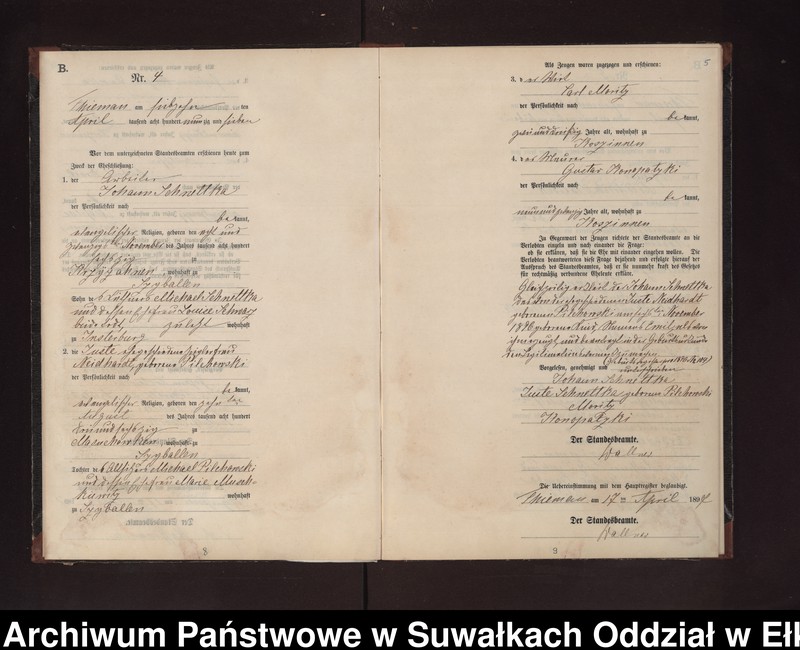 B.
Nr. 4
Thieman am siebzehn ten
April tausend acht hundert neunzig und sieben
Vor dem unterzeichneten Standesbeamten erschienen heute zum
Zweck der Eheschließung:
1. der Arbeiter
Johann Schnettka
der Persönlichkeit nach
be kannt,
evangelischer Religion, geboren den acht und
zwanzigsten November des Jahres tausend acht hundert
sechzig zu
, wohnhaft zu
Szyballen
Sohn des Michael Schnettka
und dessen Ehefrau Louise
beide todt, zuletzt wohnhaft
zu Insterburg
2. die Juste geschiedene
Neidhardt, geborene Pilchowski
der Persönlichkeit nach
be kannt,
evangelischer Religion, geboren den zehn ten
des Jahres tausend acht hundert
einundsechzig zu
, wohnhaft zu
Szyballen
Tochter des Altsitzers Michael Pilchowski
und dessen Ehefrau Marie
wohnhaft
zu Szyballen
8
5
Als Zeugen waren zugezogen und erschienen:
3. der Wirt
Carl Moritz
der Persönlichkeit nach
be kannt,
zweiunddreißig Jahre alt, wohnhaft zu
4. der Maurer
Gustav Konopatzki
der Persönlichkeit nach
be kannt,
neunundzwanzig Jahre alt, wohnhaft zu
In Gegenwart der Zeugen richtete der Standesbeamte an die
Verlobten einzeln und nach einander die Frage:
ob sie erklären, daß sie die Ehe mit einander eingehen wollen. Die
Verlobten beantworteten diese Frage bejahend und erfolgte hierauf der
Ausspruch des Standesbeamten, daß er sie nunmehr kraft des Gesetzes
für rechtmäßig verbundene Eheleute erkläre.
Gleichzeitig erklärt der Johann Schnettka
das der geschiedenen Juste Neidhardt
geborenen Pilchowski am November
1896 geborene Kind Namens Emil, als von
ihm erzeugt, und beantragt in der Geburtsurkunde
Vorgelesen, genehmigt und unterschrieben
Johann Schnettka
Juste Schnettka geborene Pilchowski
Moritz
Konopatzki
Der Standesbeamte.
Die Uebereinstimmung mit dem Hauptregister beglaubigt.
Thieman am 17ten April 1897
Der Standesbeamte.
9
Archiwum Państwowe w Suwałkach Oddział w Ełk